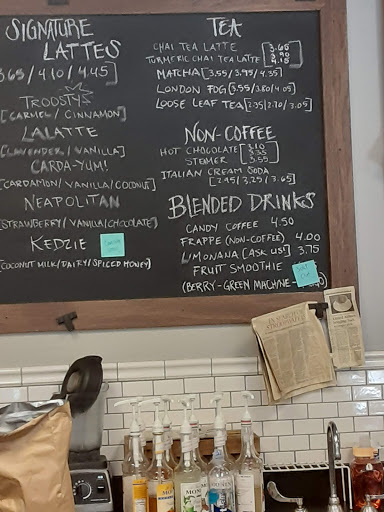 SIGNATURE
LATTES
3.65/4.10/4.45]
TRODSTYA
[CARMEL/CINNAMON]
LALATTE
[LAVENDER/VANILLA]
CARDA-YUM!
[CARDAMON/VANILLA/COCONUT]
NEAPOLITAN
[STRAWBERRY/VANILLA/CHOCOLATE]
KEDZIE
[COCONUT MILK/DAIRY/SPICED HONEY]
TEA
CHAI TEA LATTE [3.60
TURMERIC CHAI TEA LATTE 3.90
4.15]
MATCHA [3.55/3.95/4.35]
LONDON FOG [3.55/3.80/4.05]
LOOSE LEAF TEA [2.35/2.70/3.05]
NON-COFFEE
HOT CHOCOLATE [3.10
STEMER 3.35
3.55]
ITALIAN CREAM SODA
[2.95/3.25/3.65]
BLENDED DRINKS
CANDY COFFEE 4.50
FRAPPE (NON-COFFEE) 4.00
LIMONANA [ASK US!] 3.75
FRUIT SMOOTHIE
(BERRY-GREEN MACHINE-
MON